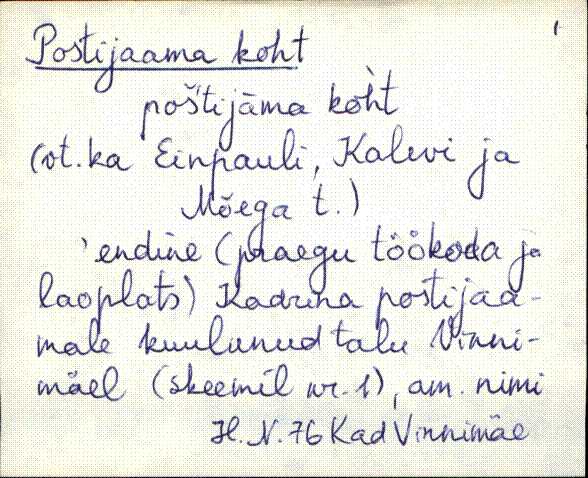 1
Postijaama koht
poštijāma kòht
(vt. ka Einpauli, Kalevi ja
Mõega t.)
endine (praegu töökoda ja
laoplats) Kadrina postijaa-
male kuulunud talu Vinni-
mäel (skeemil nr. 1), am. nimi
H. N. 76 Kad Vinnimäe